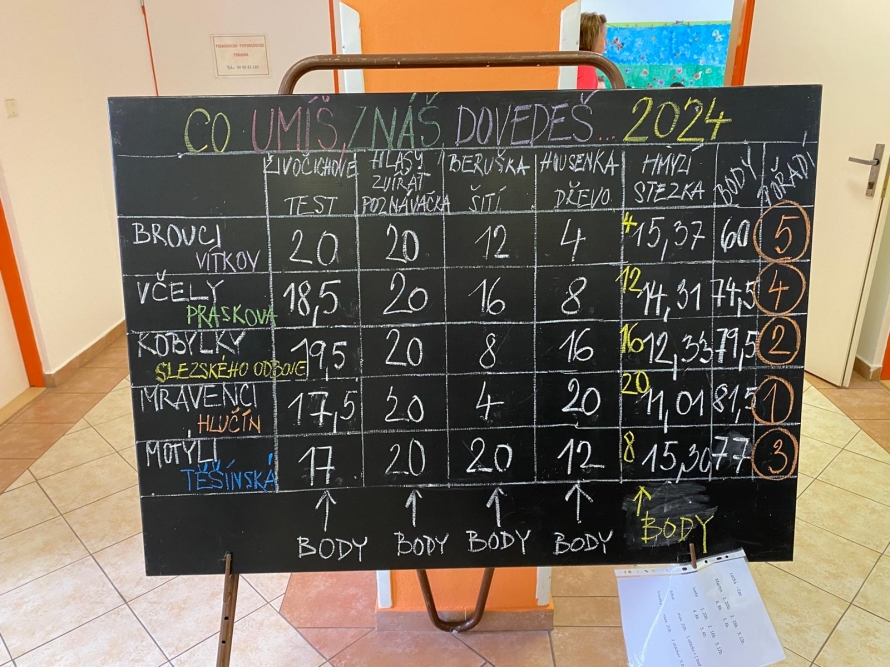 CO UMÍŠ, ZNÁŠ DOVEDEŠ... 2024
ŽIVOČICHOVÉ TEST
HLASY ZVÍŘAT POZNÁVAČKA
BERUŠKA ŠITÍ
HOUSENKA DŘEVO
HMYZÍ STEZKA
BODY
POŘADÍ
BROUCI VÍTKOV 20 20 12 4 4 15,37 60 5
VČELY PRASKOVA 18,5 20 16 8 12 14,31 74,5 4
KOBYLKY SLEZSKÉHO ODBOJE 19,5 20 8 16 16 12,33 79,5 2
MRAVENCI HLUČÍN 17,5 20 4 20 20 11,01 81,5 1
MOTÝLI TĚŠÍNSKÁ 17 20 20 12 8 15,30 77 3
↑ ↑ ↑ ↑ ↑
BODY BODY BODY BODY BODY